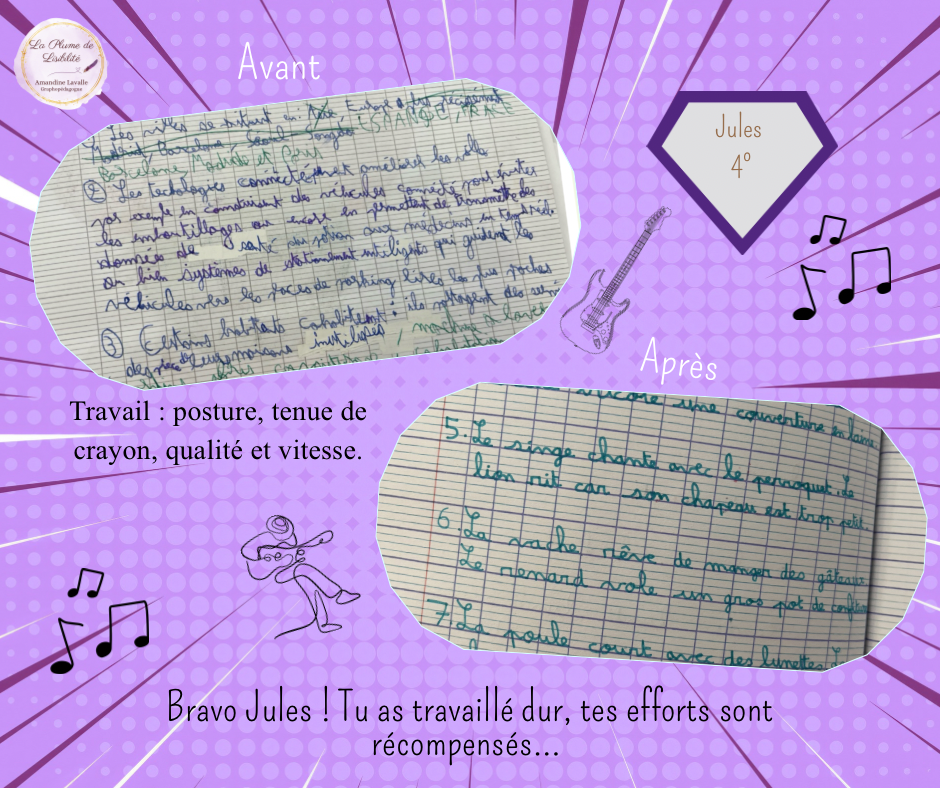 La Plume de
Lisibilité
Amandine Lavalle
Graphopédagogue
Avant
Jules
4°
Les villes se situent en Europe
Madrid, Barcelone, Seoul, Songdo
Barcelone, Madrid et Paris
② Les techologies connectée et améliorer les ville
par exemple en construisant des véhicules connecté pour éviter
les embouteillages ou encore en permettant de transmettre des
données de santé du patient aux médecins en
ou bien systèmes de stationnement intelligents qui guident les
véhicules vers les places de parking libres les plus proches
③ Certains habitants : ils partagent des
machine à laver
Après
encore une couverture en laine
5. Le singe chante avec le perroquet. Le
lion rit car son chapeau est trop petit.
6. La vache rêve de manger des gâteaux
Le renard vole un gros pot de confiture
7. La poule court avec des lunettes.
Travail : posture, tenue de
crayon, qualité et vitesse.
Bravo Jules ! Tu as travaillé dur, tes efforts sont
récompensés...